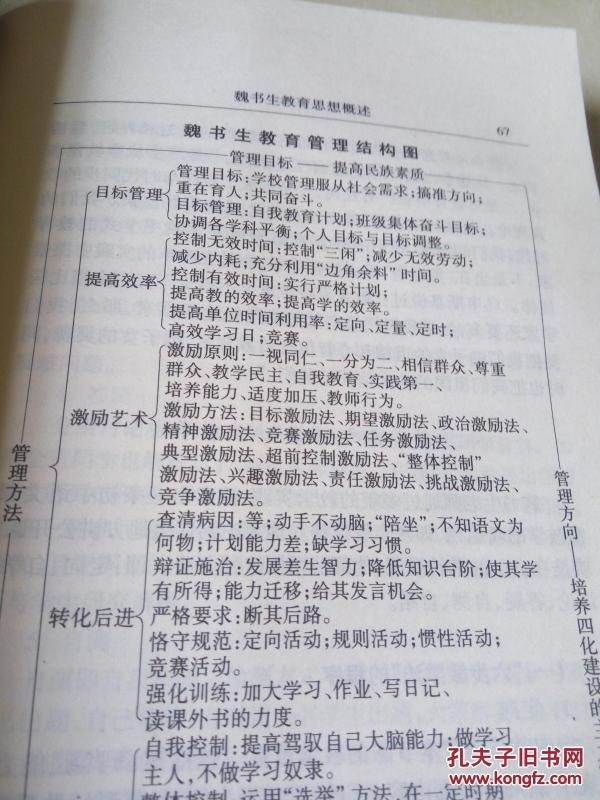 魏书生教育思想概述
67
魏书生教育管理结构图
管理目标——提高民族素质
管理目标:学校管理服从社会需求;搞准方向;
重在育人;共同奋斗。
目标管理
目标管理:自我教育计划;班级集体奋斗目标;
协调各学科平衡;个人目标与目标调整。
控制无效时间:控制“三闲”;减少无效劳动;
减少内耗;充分利用“边角余料”时间。
提高效率
控制有效时间:实行严格计划;
提高教的效率;提高学的效率。
提高单位时间利用率:定向、定量、定时;
高效学习日;竞赛。
激励原则:一视同仁、一分为二、相信群众、尊重
群众、教学民主、自我教育、实践第一、
培养能力、适度加压、教师行为。
激励艺术
激励方法:目标激励法、期望激励法、政治激励法、
精神激励法、竞赛激励法、任务激励法、
典型激励法、超前控制激励法、“整体控制”
激励法、兴趣激励法、责任激励法、挑战激励法、
竞争激励法。
管理方法
查清病因:等;动手不动脑;“陪坐”;不知语文为
何物;计划能力差;缺学习习惯。
辩证施治:发展差生智力;降低知识台阶;使其学
有所得;能力迁移;给其发言机会。
转化后进
严格要求:断其后路。
恪守规范:定向活动;规则活动;惯性活动;
竞赛活动。
强化训练:加大学习、作业、写日记、
读课外书的力度。
自我控制:提高驾驭自己大脑能力;做学习
主人,不做学习奴隶。
整体控制:运用“选举”方法,在一定时期
管理方向——培养四化建设的主
孔夫子旧书网